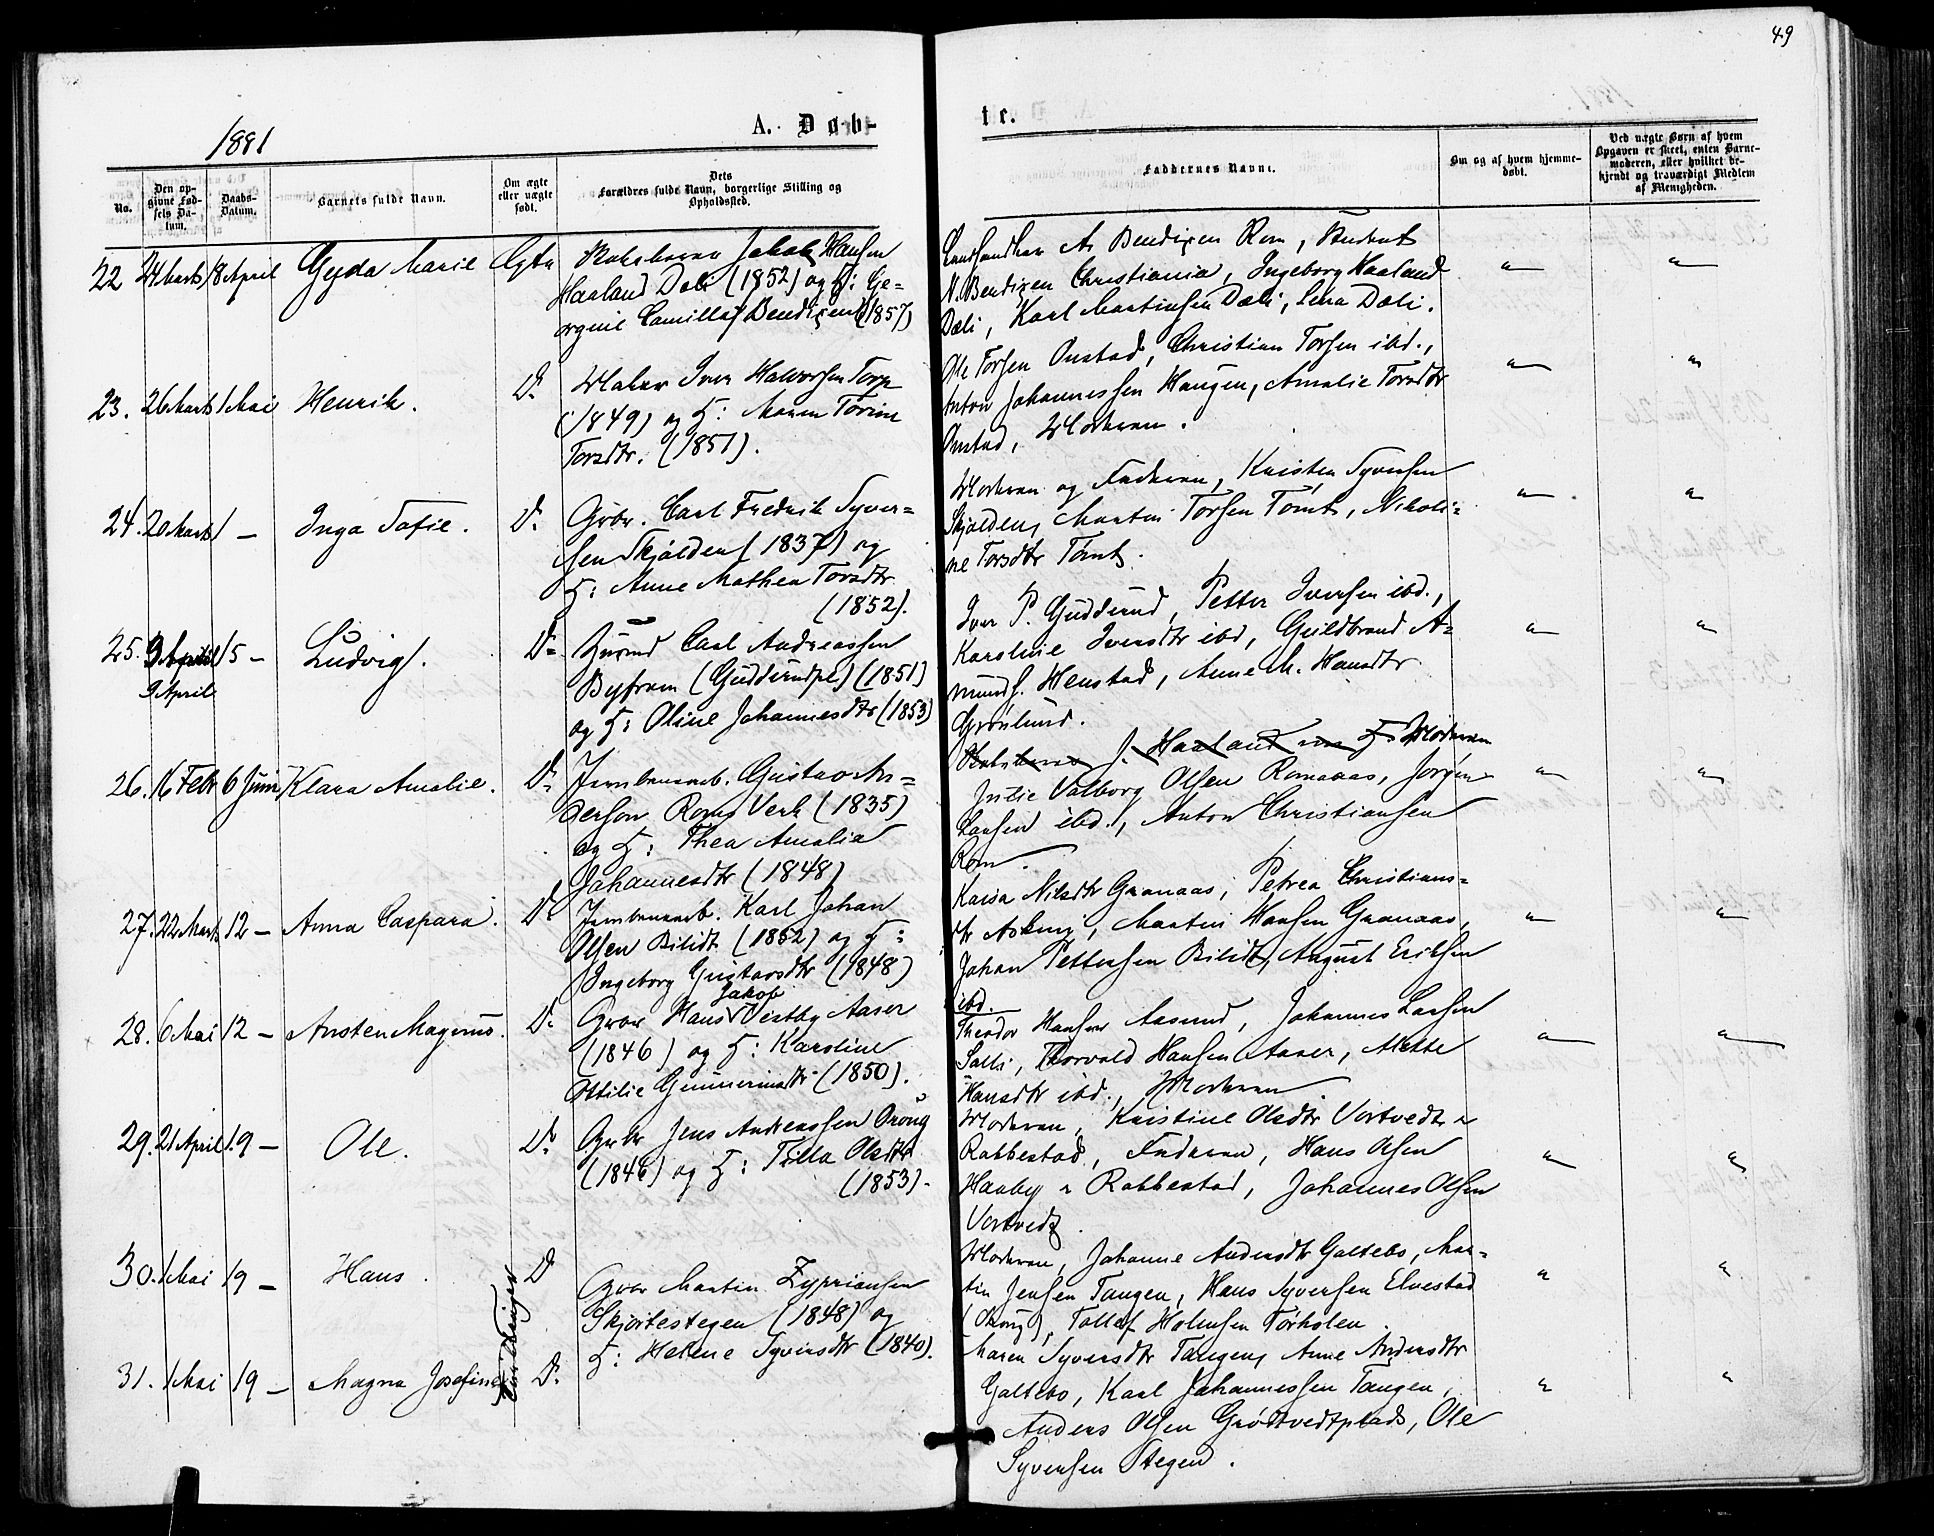 49
1881
A. Døb-
te.
No.
Den op-
givne Fød-
sels Da-
tum.
Daabs-
Datum.
Barnets fulde Navn.
Om ægte
eller uægte
født.
Dets
Forældres fulde Navn, borgerlige Stilling og
Opholdssted.
Faddernes Navne.
Om og af hvem hjemme-
døbt.
Ved uægte Børn af hvem
Opgaven er skeet, enten Barne-
moderen, eller hvilket be-
kjendt og troværdigt Medlem
af Menigheden.
22 24 Marts 18 April Gyda Marie Egte
Jakob Hansen
Haaland Dæli (1852) og H: Ge-
orgine Camilla Bendixen (1857)
Landhandler A. Bendixen Rom, Student
N. Bendixen Christiania, Ingeborg Haaland
Dæli, Karl Martinsen Dæli, Lena Dæli.
23. 26 Marts 1 Mai Henrik. Do
Maler Iver Halvorsen Torp
(1849) og H: Maren Torine
Torsdtr. (1851).
Ole Torsen Onstad, Christian Torsen ibd.,
Anton Johannessen Haugen, Amalie Torsdtr
Onstad, Moderen.
24. 20 Marts 1 — Inga Sofie. Do
Grbr. Carl Fredrik Syver-
sen Skjolden (1837) og
H: Anne Mathea Torsdtr
(1852).
Moderen og Faderen, Kristen Syversen
Skjolden, Martin Torsen Tomt, Nikoli-
ne Torsdtr Tomt.
25. 9 April 15 — Ludvig. Do
9 April
Carl Andreassen
Byfram (Gudderudpl) (1851)
og H: Oline Johannesdtr (1853)
Iver P. Gudderud, Petter Iversen ibd.,
Karoline Iversdtr ibd, Guldbrand A-
munds. Henstad, Anne M. Hansdtr
Grønlund.
26. 16 Febr 6 Juni Klara Amalie. Do
Jernbanearb. Gustav An-
derson Roms Verk (1835)
og H: Thea Amalia
Johannesdtr (1848)
J. Haaland og H. Moderen
Julie Valborg Olsen Romsaas, Jørgen
Larsen ibd., Anton Christiansen
Rom.
27. 22 Marts 12 — Anna Caspara. Do
Jernbanearb. Karl Johan
Olsen Bilidt (1852) og H:
Ingeborg Gustavsdtr (1848)
Kaisa Nilsdtr Granaas, Petrea Christians-
dtr Askeng, Martin Hansen Granaas,
Johan Pettersen Bilidt, August Eriksen
ibd.
28. 6 Mai 12 — Austen Magnus. Do
Jakob
Grbr Hans Vestby Aaser
(1846) og H: Karoline
Ottilie Gunnerinsdtr (1850).
Theodor Hansen Aasrud, Johannes Larsen
Salli, Thorvald Hansen Aaser, Mette
Hansdtr ibd., Moderen.
29. 21 April 19 — Ole. Do
Grbr Jens Andreassen Oraug
(1846) og H: Tilla Olsdtr
(1853).
Moderen, Kristine Olsdtr Vortvedt
Rabbestad, Faderen, Hans Olsen
Haaby Rabbestad, Johannes Olsen
Vortvedt.
30. 1 Mai 19 — Hans. Do
Grbr Martin Zyprianssen
Skjortestegen (1848) og
H: Helene Syversdtr (1840).
Moderen, Johanne Andersdtr Galtebo, Mar-
tin Jensen Tangen, Hans Syversen Elvestad
(Skoug), Tollef Holmsen Torholen.
31. 1 Mai 19 — Magna Josefine Do
Ere Tvinger
Maren Syversdtr Tangen, Anne Andersdtr
Galtebo, Karl Johannessen Tangen,
Anders Olsen Grødtvedtplads, Ole
Syversen Stegen.